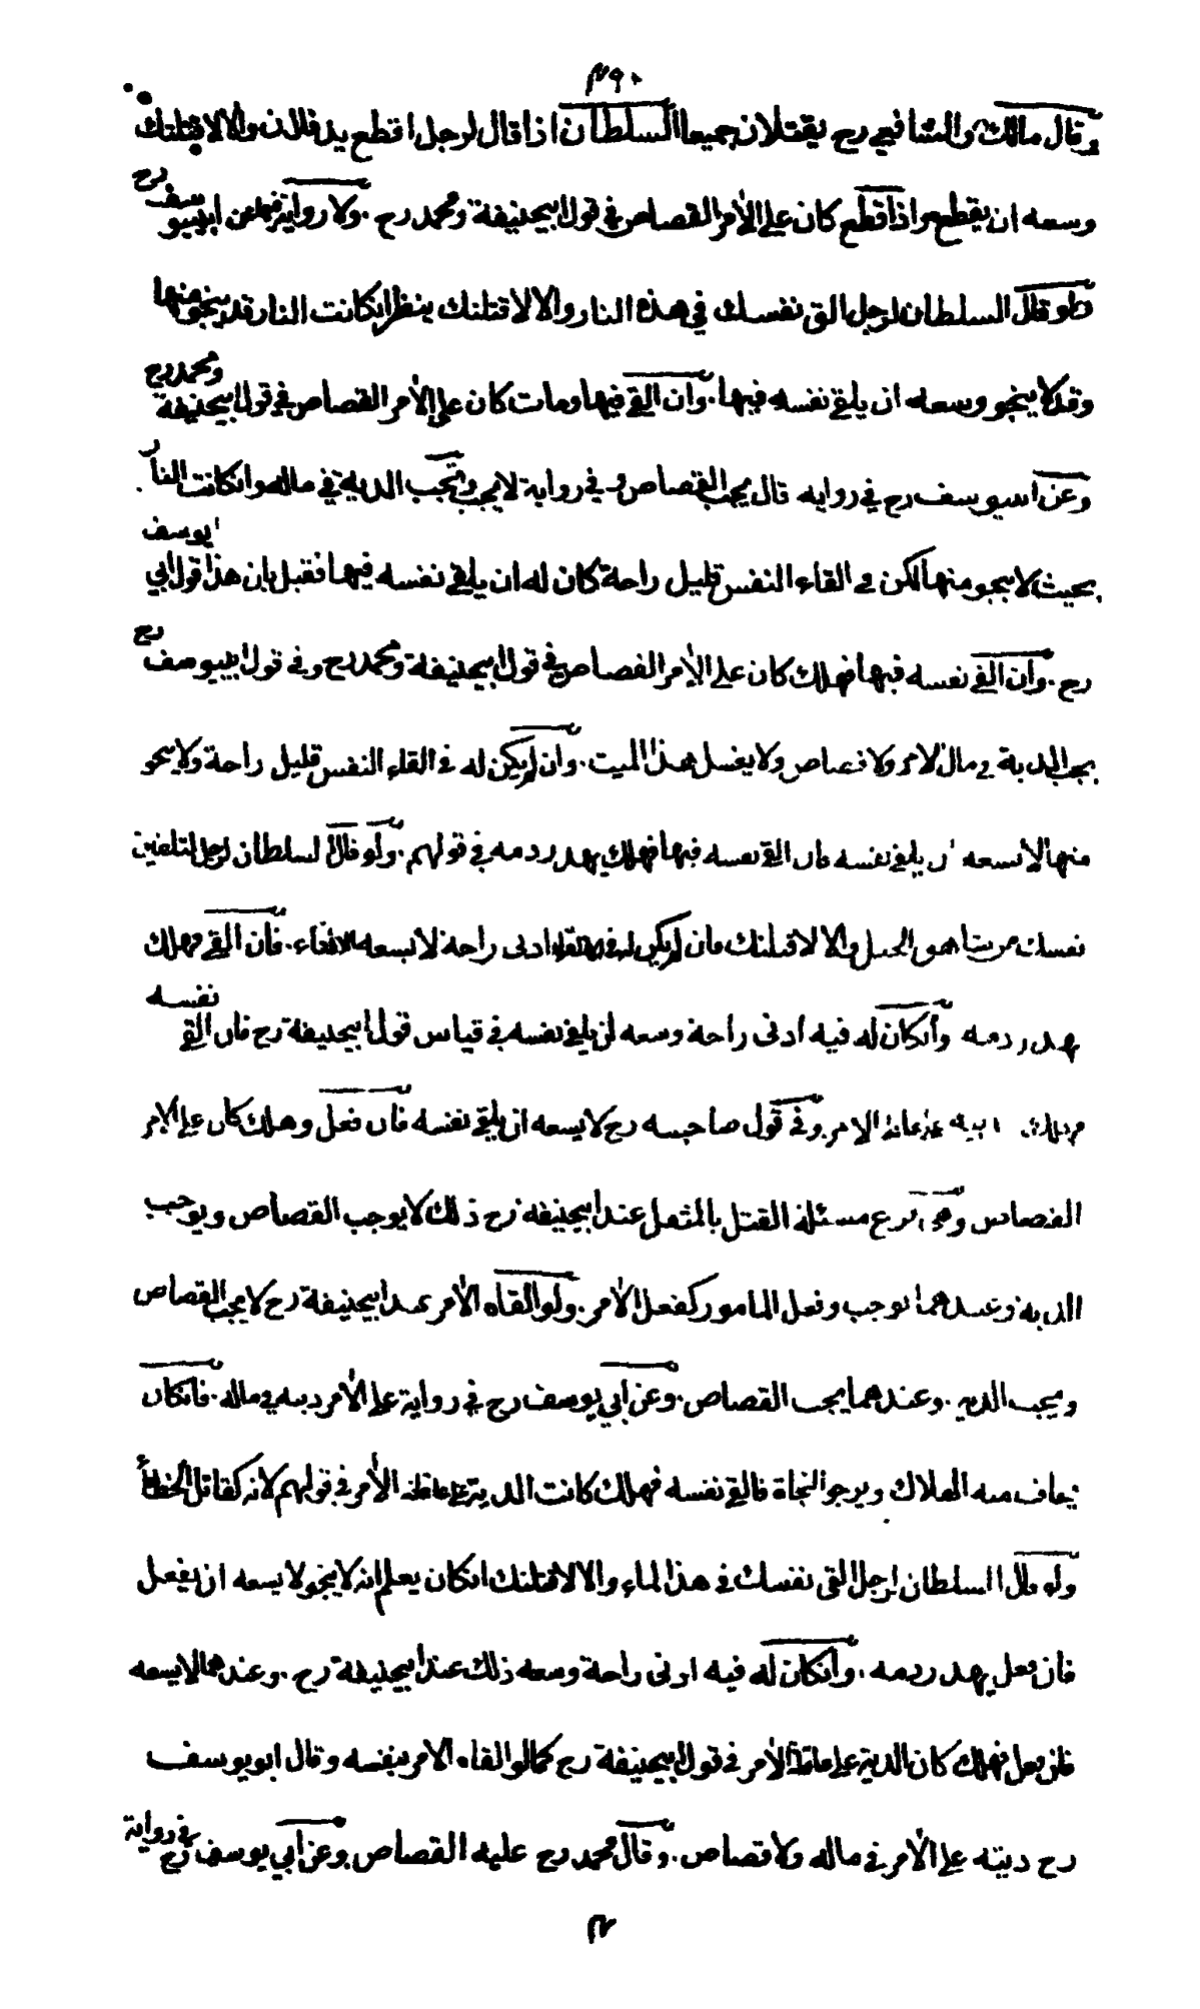 ٤٩٠
وقال مالك والشافعي رح يقتلان جميعا السلطان اذا قال لرجل اقطع يد فلان والا لاقتلنك
وسعه ان يقطع واذا قطع كان على الأمر القصاص في قول ابيحنيفة ومحمد رح . ولا رواية فيها عن ابييوسف رح
ولو قال السلطان لرجل الق نفسك في هذه النار والا لاقتلنك ينظر انكانت النار قد ينجو منها
وقد لا ينجو وسعه ان يلقي نفسه فيها . وان القي فيها ومات كان على الأمر القصاص في قول ابيحنيفة ومحمد رح
وعن ابييوسف رح في رواية قال يجب القصاص وفي رواية لا يجب وتجب الدية في ماله وانكانت النار
بحيث لا ينجو منها لكن في القاء النفس قليل راحة كان له ان يلقي نفسه فيها فقيل بان هذا قول ابي يوسف
رح . وان القى نفسه فيها فهلك كان على الأمر القصاص في قول ابيحنيفة ومحمد رح وفي قول ابييوسف رح
يجب الدية في مال الامر ولا قصاص ولا يغسل هذا الميت . وان لم يكن له في القاء النفس قليل راحة ولا ينجو
منها لا يسعه ان يلقي نفسه فان القى نفسه فيها فهلك يهدر دمه في قولهم . ولو قال السلطان لرجل لتلقين
نفسك من شاهق الجبل والا لاقتلنك فان لم يكن له في الالقاء ادنى راحة لا يسعه الالقاء . فان القي فهلك
يهدر دمه وانكان له فيه ادنى راحة وسعه ان يلقي نفسه في قياس قول ابيحنيفة رح فان القي نفسه
فهلك ديته على عاقلة الامر وفي قول صاحبيه رح لا يسعه ان يلقي نفسه فان فعل وهلك كان على الامر
القصاص وهي فرع مسئلة القتل بالمثقل عند ابيحنيفة رح ذلك لا يوجب القصاص ويوجب
الدية وعندهما يوجب وفعل المامور كفعل الأمر . ولو القاه الأمر عند ابيحنيفة رح لا يجب القصاص
ويجب الدية . وعندهما يجب القصاص . وعن ابي يوسف رح في رواية على الأمر ديته في ماله . فانكان
يخاف منه الهلاك ويرجو النجاة فالقى نفسه فهلك كانت الدية على عاقلة الأمر في قولهم لانه كقاتل الخطأ
ولو قال السلطان لرجل الق نفسك في هذا الماء والا لاقتلنك انكان يعلم انه لا ينجو لا يسعه ان يفعل
فان فعل يهدر دمه . وانكان له فيه ادنى راحة وسعه ذلك عند ابيحنيفة رح . وعندهما لا يسعه
فان فعل فهلك كان الدية على عاقلة الأمر في قول ابيحنيفة رح كما لو القاه الامر بنفسه وقال ابو يوسف
رح ديته على الأمر في ماله ولا قصاص . وقال محمد رح عليه القصاص وعن ابي يوسف رح في رواية